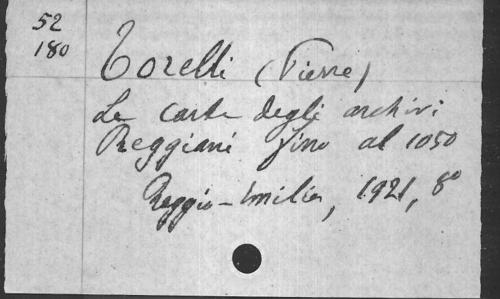 52
180
Torelli (Pierre)
Le carte degli archivi
Reggiani fino al 1050
Reggio-Emilia, 1921, 8°